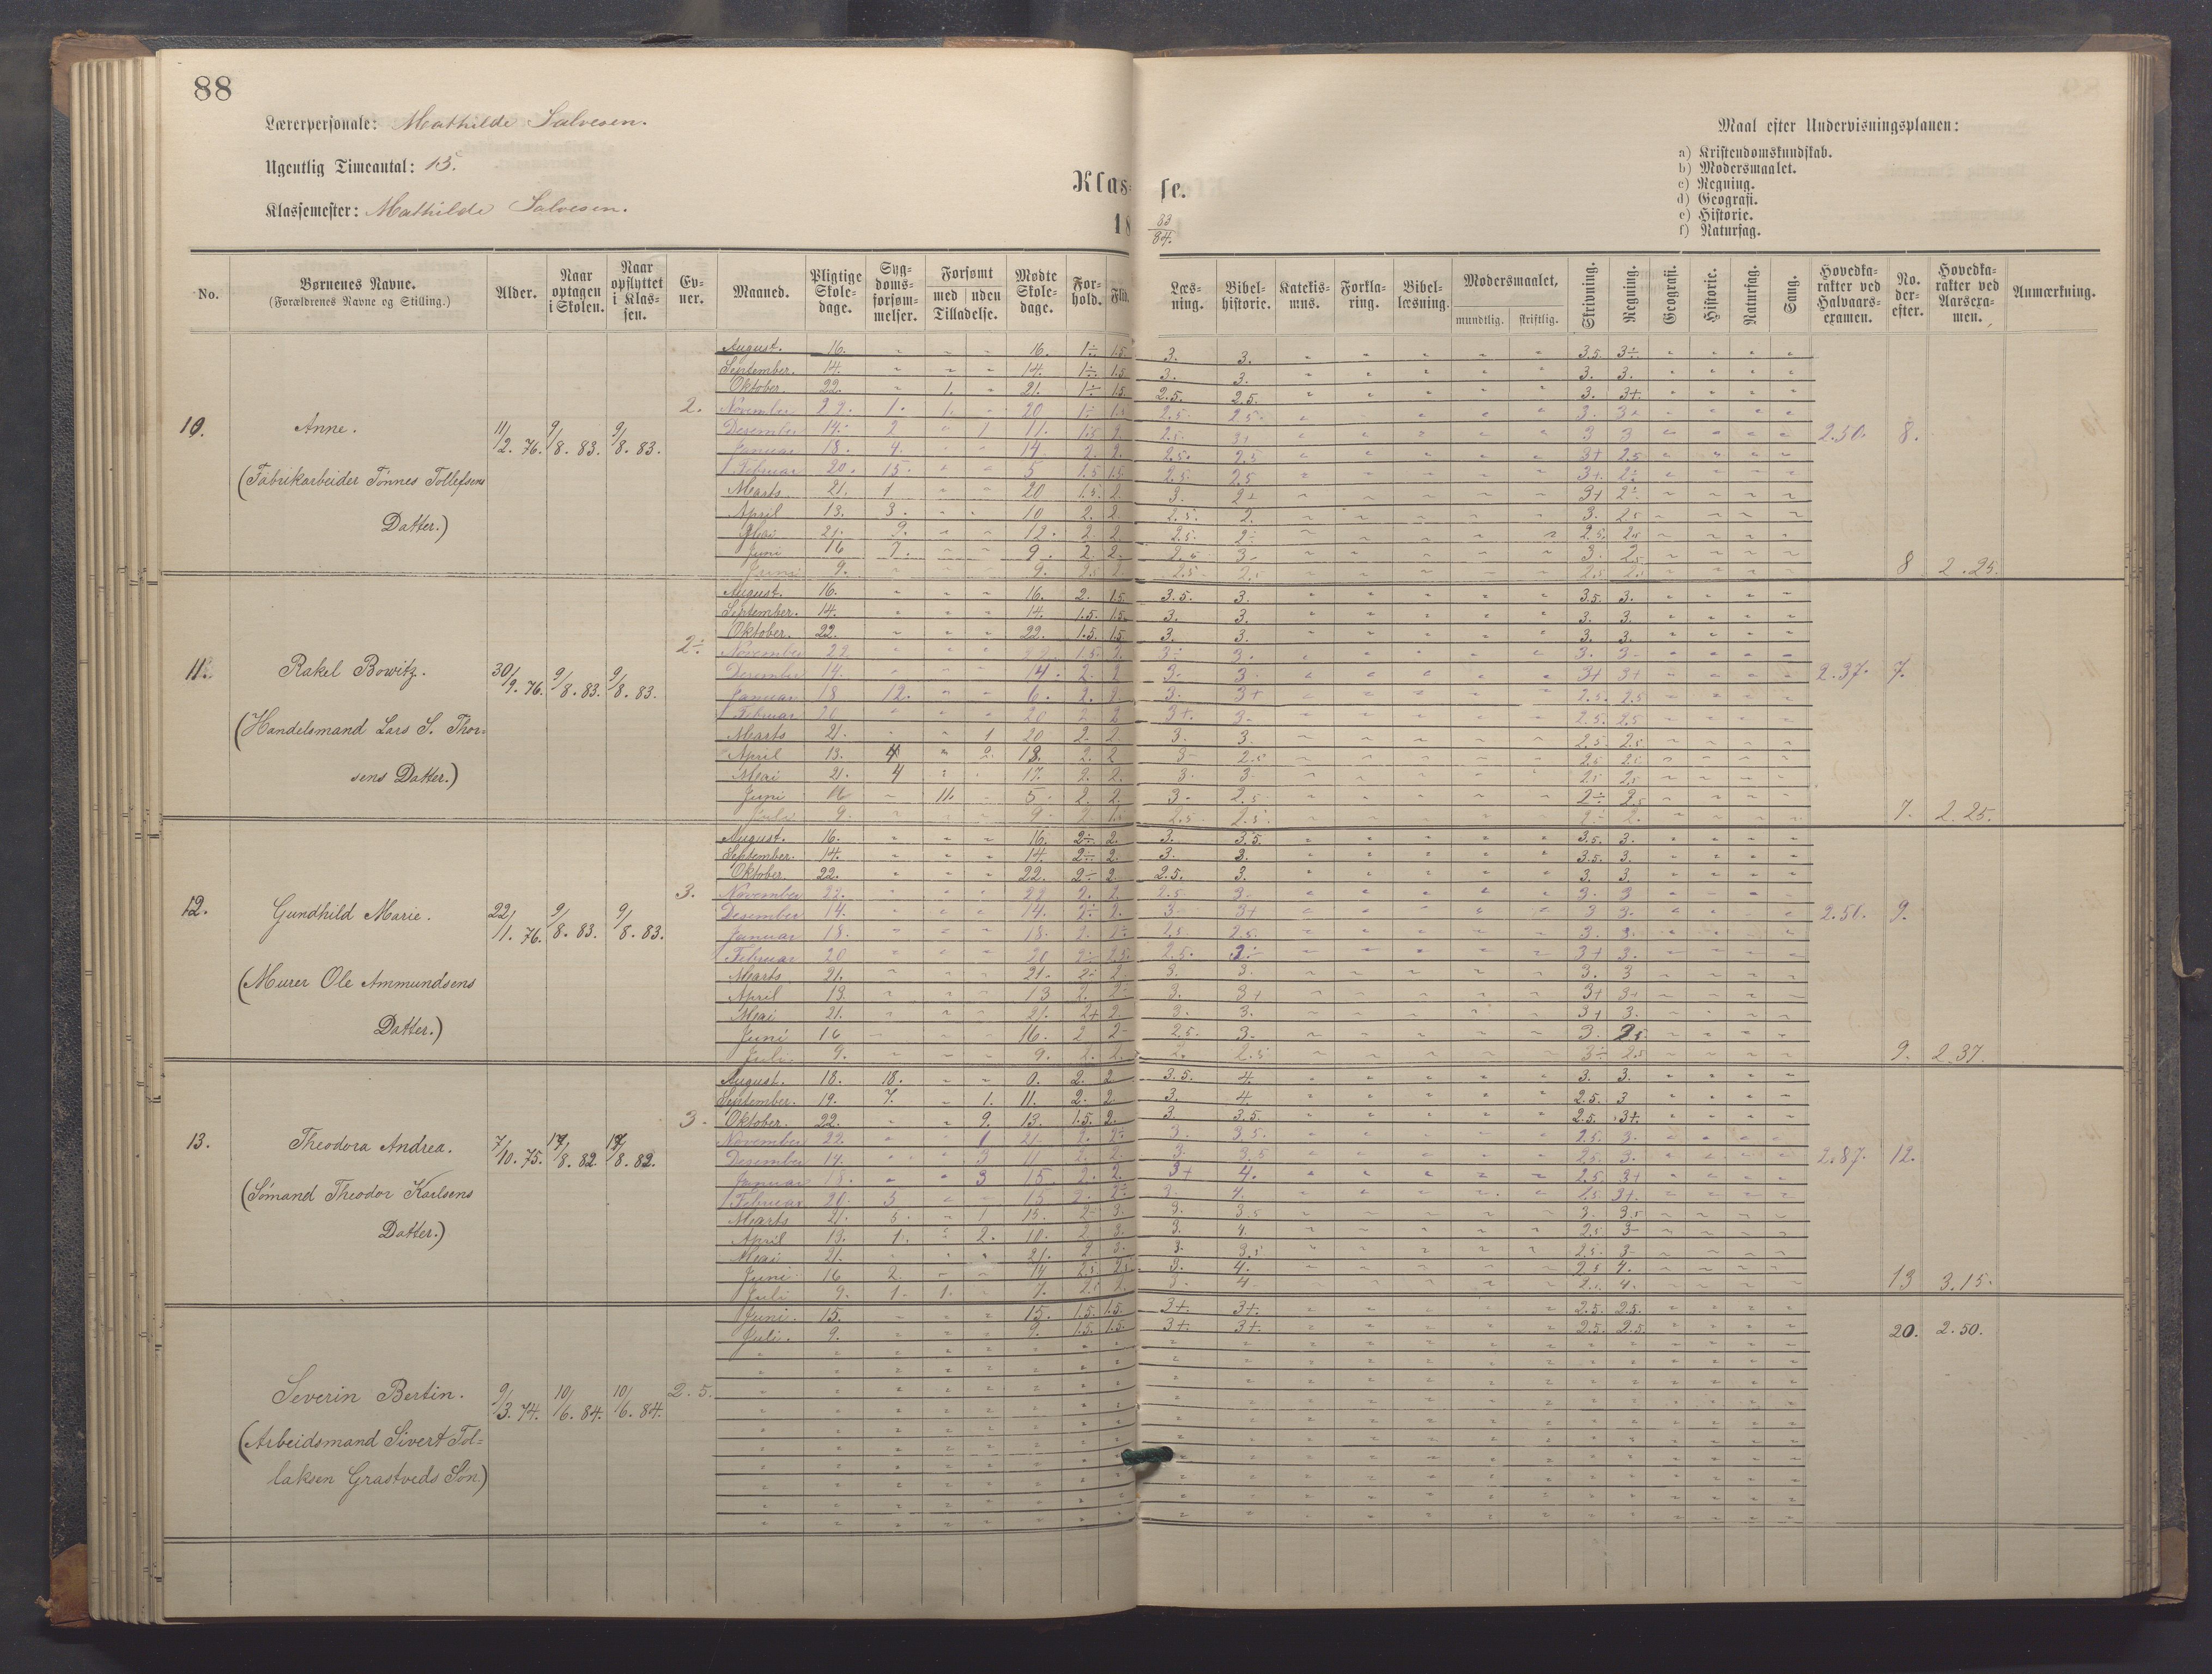 88
Lærerpersonale: Mathilde Salvesen.
Ugentlig Timeantal: 15.
Klassemester: Mathilde Salvesen.
Klasse.
18 83/84.
Maal efter Undervisningsplanen:
a) Kristendomskundskab.
b) Modersmaalet.
c) Regning.
d) Geografi.
e) Historie.
f) Naturfag.
No. Børnenes Navne. (Forældrenes Navne og Stilling.) Alder. Naar optagen i Skolen. Naar opflyttet i Klassen. Evner. Maaned. Pligtige Skoledage. Sygdomsforsømmelser. Forsømt med uden Tilladelse. Mødte Skoledage. Forhold. Flid. Læsning. Bibelhistorie. Katekismus. Forklaring. Bibellæsning. Modersmaalet, mundtlig. skriftlig. Skrivning. Regning. Geografi. Historie. Naturfag. Sang. Hovedkarakter ved Halvaarsexamen. No. derefter. Hovedkarakter ved Aarsexamen. Anmærkning.
August. 16. " " " 16. 1÷ 1.5. 3. 3. 3.5. 3÷
September. 14. " " " 14. 1÷ 1.5 3. 3. 3. 3.
Oktober. 22. " 1. " 21. 1÷ 1.5 2.5. 2.5. 3. 3+.
November 22. 1. 1. " 20 2.5 2.5 3. 3+
Desember 14. 2 " 1 11. 3 3
Januar 18. 4. 14 2. 2. 2.5. 2.5 3+ 2.5
Februar 20. 15. 5 1.5 1.5 2.5 2.5 3+
Marts 21. 1 20 1.5. 2. 3. 2+ 3+ 2÷
April 13. 3. 10 2. 2. 2.5. 2. 3. 2.5
Mai 21. 9. 12. 2 2 2.5. 2÷ 2.5. 2.5
Juni 16 7. 9. 2 2. 3. 3. 2.5
9. 9. 2.5 2. 2.5 2.5 2.5 2.5
10. Anne. 11/2. 76. 9/8. 83. 9/8. 83. 2. 2.50. 8.
(Fabrikarbeider Tønnes Tollefsens
Datter.)
8 2.25.
August. 16. " " " 16. 2. 1.5. 3.5. 3. 3.5. 3.
September. 14. " " " 14. 1.5. 1.5. 3. 3. 3. 3.
Oktober. 22. " " " 22. 1.5. 1.5 3. 3. 3. 3.
November 22 22 1.5 2. 3÷ 3. 3. 3-
Desember 14. 14. 2. 2 3. 3. 3+ 3+
Januar 18 12. 6. 2. 2. 3. 3+ 2.5. 2.5
Februar 20 20 2 2 3+. 3. 2.5. 2.5
Marts 21. 1 20 2. 2. 3. 3. 2.5. 2.5.
April 13. 4 2. 2 3- 2.5 2.5 2.5
Mai 21. 4 17. 2. 2. 3. 3. 2.5 2.5
Juni 16 11. 5. 2. 2. 3- 2.5 2÷ 2.5
Juli 9. 9. 2.5 2.5. 2÷ 2.
11. Rakel Bowitz. 30/9. 76. 9/8. 83. 9/8. 83. 2÷ 2.37. 7.
(Handelsmand Lars S. Thor=
sens Datter.)
7. 2.25.
August. 16. " " " 16. 2÷ 2. 3. 3.5. 3.5. 3.
September. 14. " " " 14. 2÷ 2. 3. 3. 3.5. 3.
Oktober. 22. " " " 22. 2÷ 2. 2.5. 3. 3. 3.
November 22. 22 2. 2. 2.5. 3. 3. 3
Desember 14. 14. 2÷ 2. 3. 3+ 3 3.
Januar 18. 18. 2.5. 3. 3.
Februar 20 20 2÷ 2.5. 2.5. 3+ 3.
Marts 21. 21. 2÷ 2. 3. 3. 3. 3
April 13. 13 2. 3. 3+ 3+ 3+
Mai 21. 21. 2+ 2 3. 3. 3+ 3.
Juni 16 16. 2 2- 2.5. 3. 3. 2.5.
Juli. 9. 9. 2. 2. 2. 2.5 3÷ 2.5
12. Gundhild Marie. 22/11. 76. 9/8. 83. 9/8. 83. 3. 9.
(Murer Ole Ammundsens
Datter.)
9. 2.37.
August. 18. 18. " " 0. 2. 2 3.5. 4. 3. 3.
September. 19. 7. " 1. 11. 2. 2. 3. 4. 2.5. 3
Oktober. 22. " " 9. 13. 1.5. 2. 3. 3.5. 2.5. 3+.
November 22 1 21. 2. 2÷ 3. 3.5. 2.5. 3.
Desember 14. 3 11 2. 2. 3. 3.5 2.5. 3.
Januar 18. 3 15 2. 2. 3+ 4. 2.5. 3+
Februar 20. 5 15 2. 2÷ 3. 4. 3+.
Marts 21. 5. 1 15. 2÷ 3. 3. 3.5 3. 3.5
April 13. 1. 2. 10. 2 3. 3. 4 2.5 3-
Mai 21. 21. 2 3. 3. 3.5 2.5 3-
Juni 16 2 14 2.5 2.5 3. 4. 2.5 4.
Juli 9. 1. 1. 7. 2.5 2. 3. 4 4.
13. Theodora Andrea. 7/10. 75. 17/8. 82. 17/8. 82. 3. 2.87. 12.
(Sømand Theodor Karlsens
Datter.)
13 3.15.
Juni. 15. " " " 15. 1.5. 1.5. 3+. 3+. 2.5. 2.5.
Juli. 9. " " " 9. 1.5. 1.5. 3+. 3+. 2.5. 2.5. 20. 2.50.
Severin Bertin. 9/3. 74. 10/6. 84. 10/6. 84. 2.5.
(Arbeidsmand Sivert Tol=
laksen Grastveds Søn.)